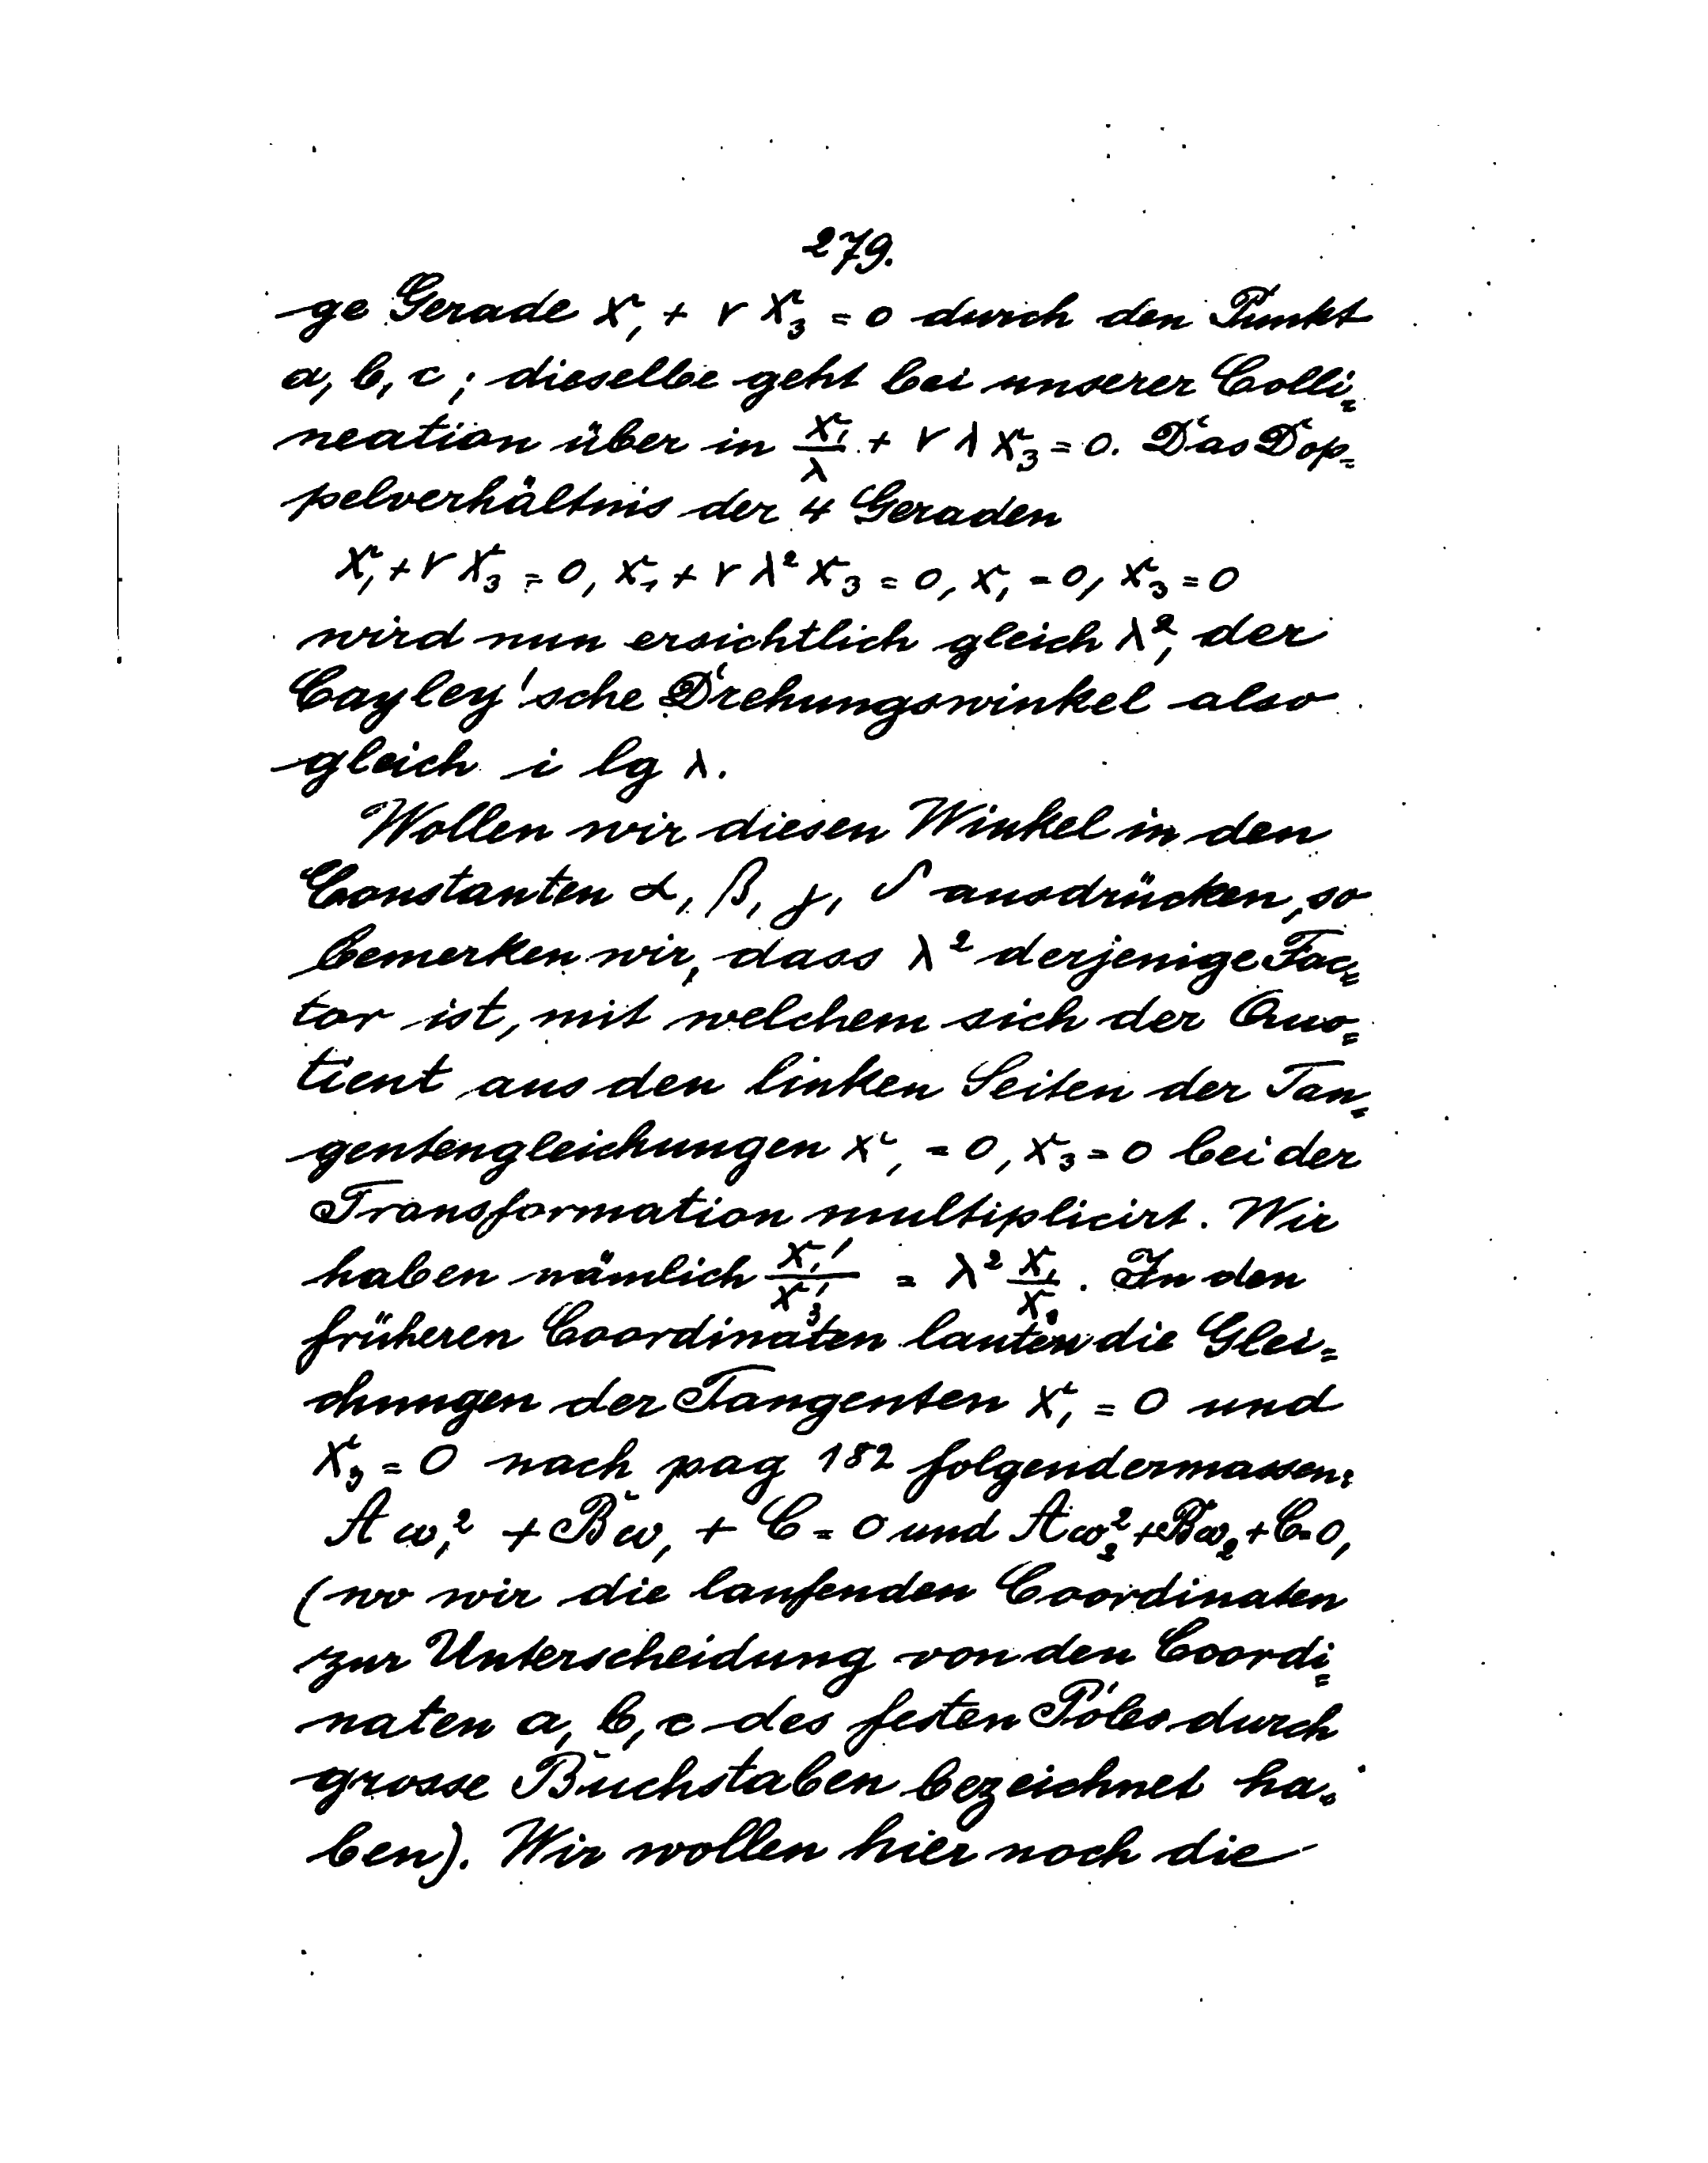 279.
ge Gerade x₁ + r x₃ = 0 durch den Punkt
a, b, c ; dieselbe geht bei unserer Colli=
neation über in x₁/λ + r λ x₃ = 0. Das Dop=
pelverhältnis der 4 Geraden
x₁ + r x₃ = 0, x₁ + r λ² x₃ = 0, x₁ = 0, x₃ = 0
wird nun ersichtlich gleich λ², der
Cayley'sche Drehungswinkel also
gleich i lg λ.
Wollen wir diesen Winkel in den
Constanten α, β, γ, δ ausdrücken, so
bemerken wir, dass λ² derjenige Fac=
tor ist, mit welchem sich der Quo=
tient aus den linken Seiten der Tan=
gentengleichungen x₁ = 0, x₃ = 0 bei der
Transformation multiplicirt. Wir
haben nämlich x₁'/x₃' = λ² x₁/x₃. In den
früheren Coordinaten lauten die Glei=
chungen der Tangenten x₁ = 0 und
x₃ = 0 nach pag 182 folgendermassen:
A ω₁² + B ω₁ + C = 0 und A ω₂² + B ω₂ + C = 0,
(wo wir die laufenden Coordinaten
zur Unterscheidung von den Coordi=
naten a, b, c des festen Poles durch
grosse Buchstaben bezeichnet ha=
ben). Wir wollen hier noch die